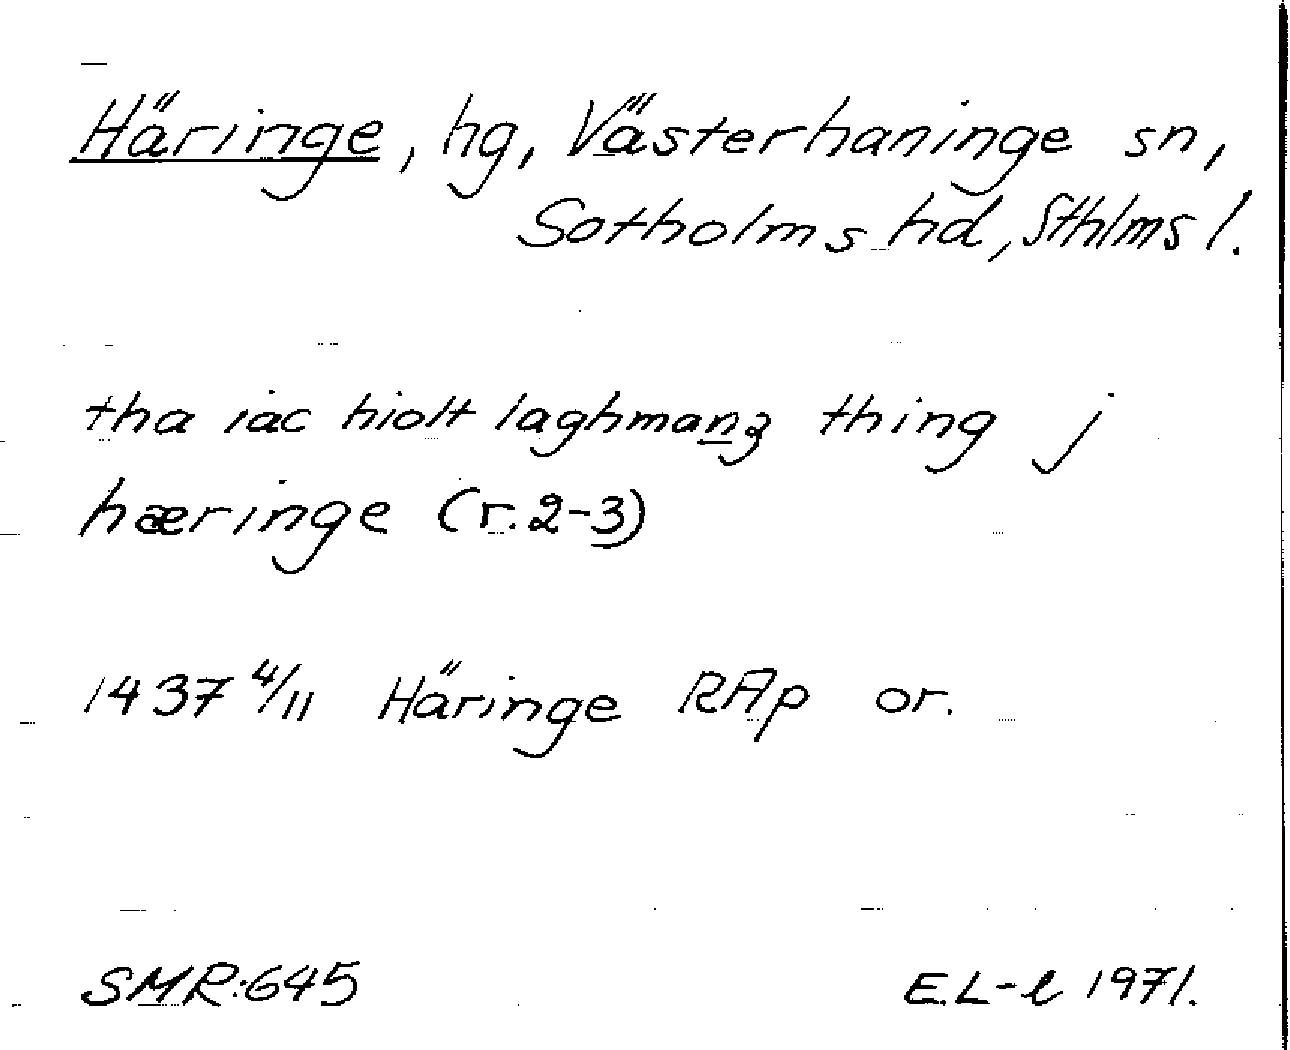 Häringe, hg, Västerhaninge sn,
Sotholms hd, Sthlms l.
tha iac hiolt laghmanz thing j
hæringe (r. 2-3)
1437 4/11 Häringe RAp or.
SMR:645 E.L-l 1971.